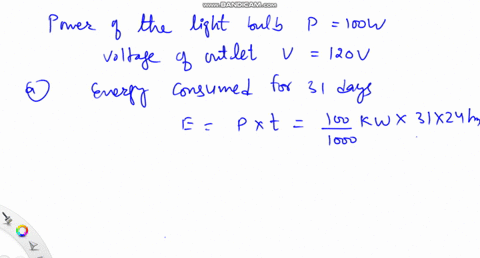 WWW.BANDICAM.COM
Power of the light bulb P = 100W
voltage of outlet V = 120V
a) Energy consumed for 31 days
E = P x t = 100/1000 KW x 31 x 24 hr